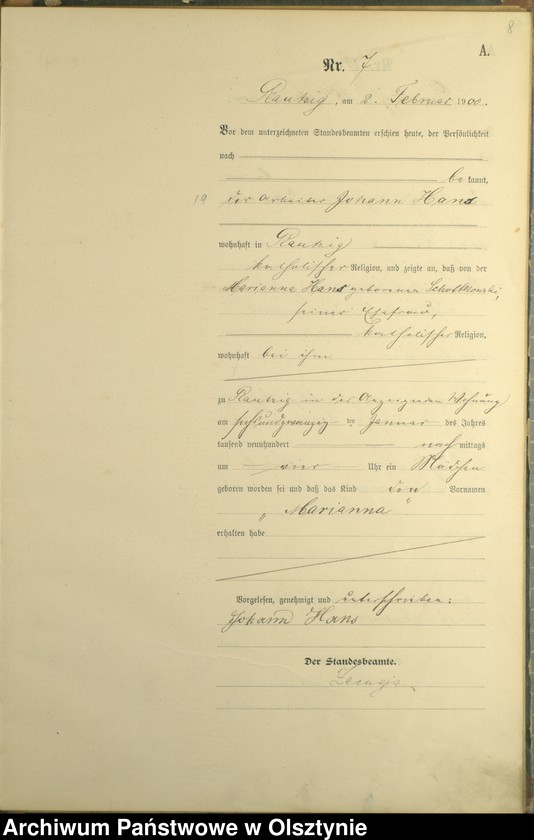 8
A.
Nr. 7
Rautzig, am 2. Februar 1900.
Vor dem unterzeichneten Standesbeamten erschien heute, der Persönlichkeit
nach
be kannt,
19 der Arbeiter Johann Hans
wohnhaft in Rautzig
katholischer Religion, und zeigte an, daß von der
Marianna Hans geborenen
seiner Ehefrau,
katholischer Religion,
wohnhaft bei ihm
zu Rautzig in des Anzeigenden Wohnung
am sechsundzwanzigten Januar des Jahres
tausend neunhundert nach mittags
um vier Uhr ein Mädchen
geboren worden sei und daß das Kind den Vornamen
„Marianna"
erhalten habe
Vorgelesen, genehmigt und unterschrieben:
Johann Hans
Der Standesbeamte.
Archiwum Państwowe w Olsztynie